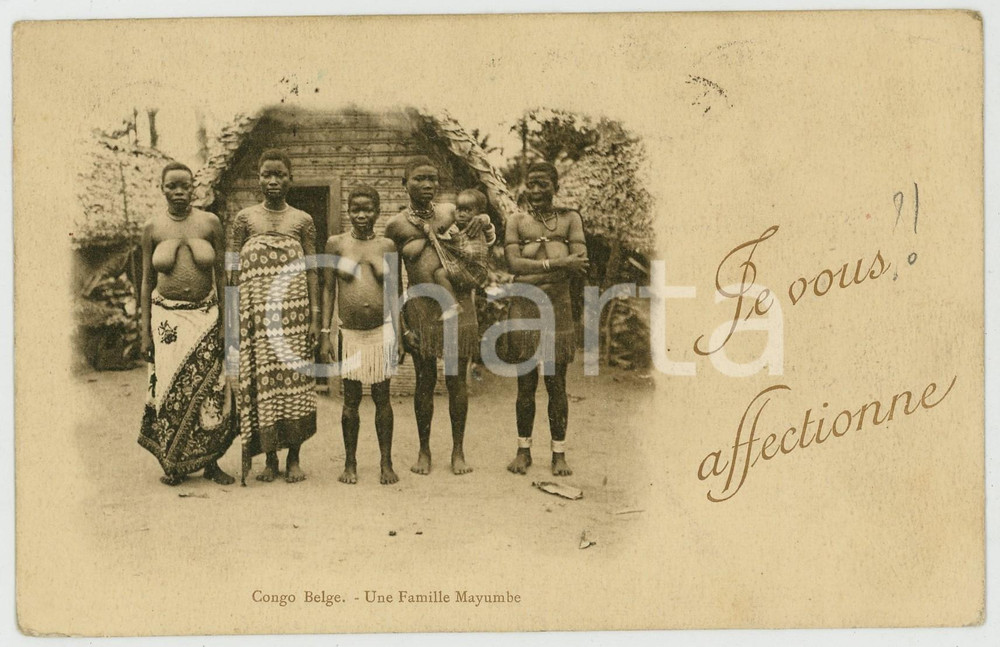 Je vous ?!
affectionne
iCharta
Congo Belge. - Une Famille Mayumbe